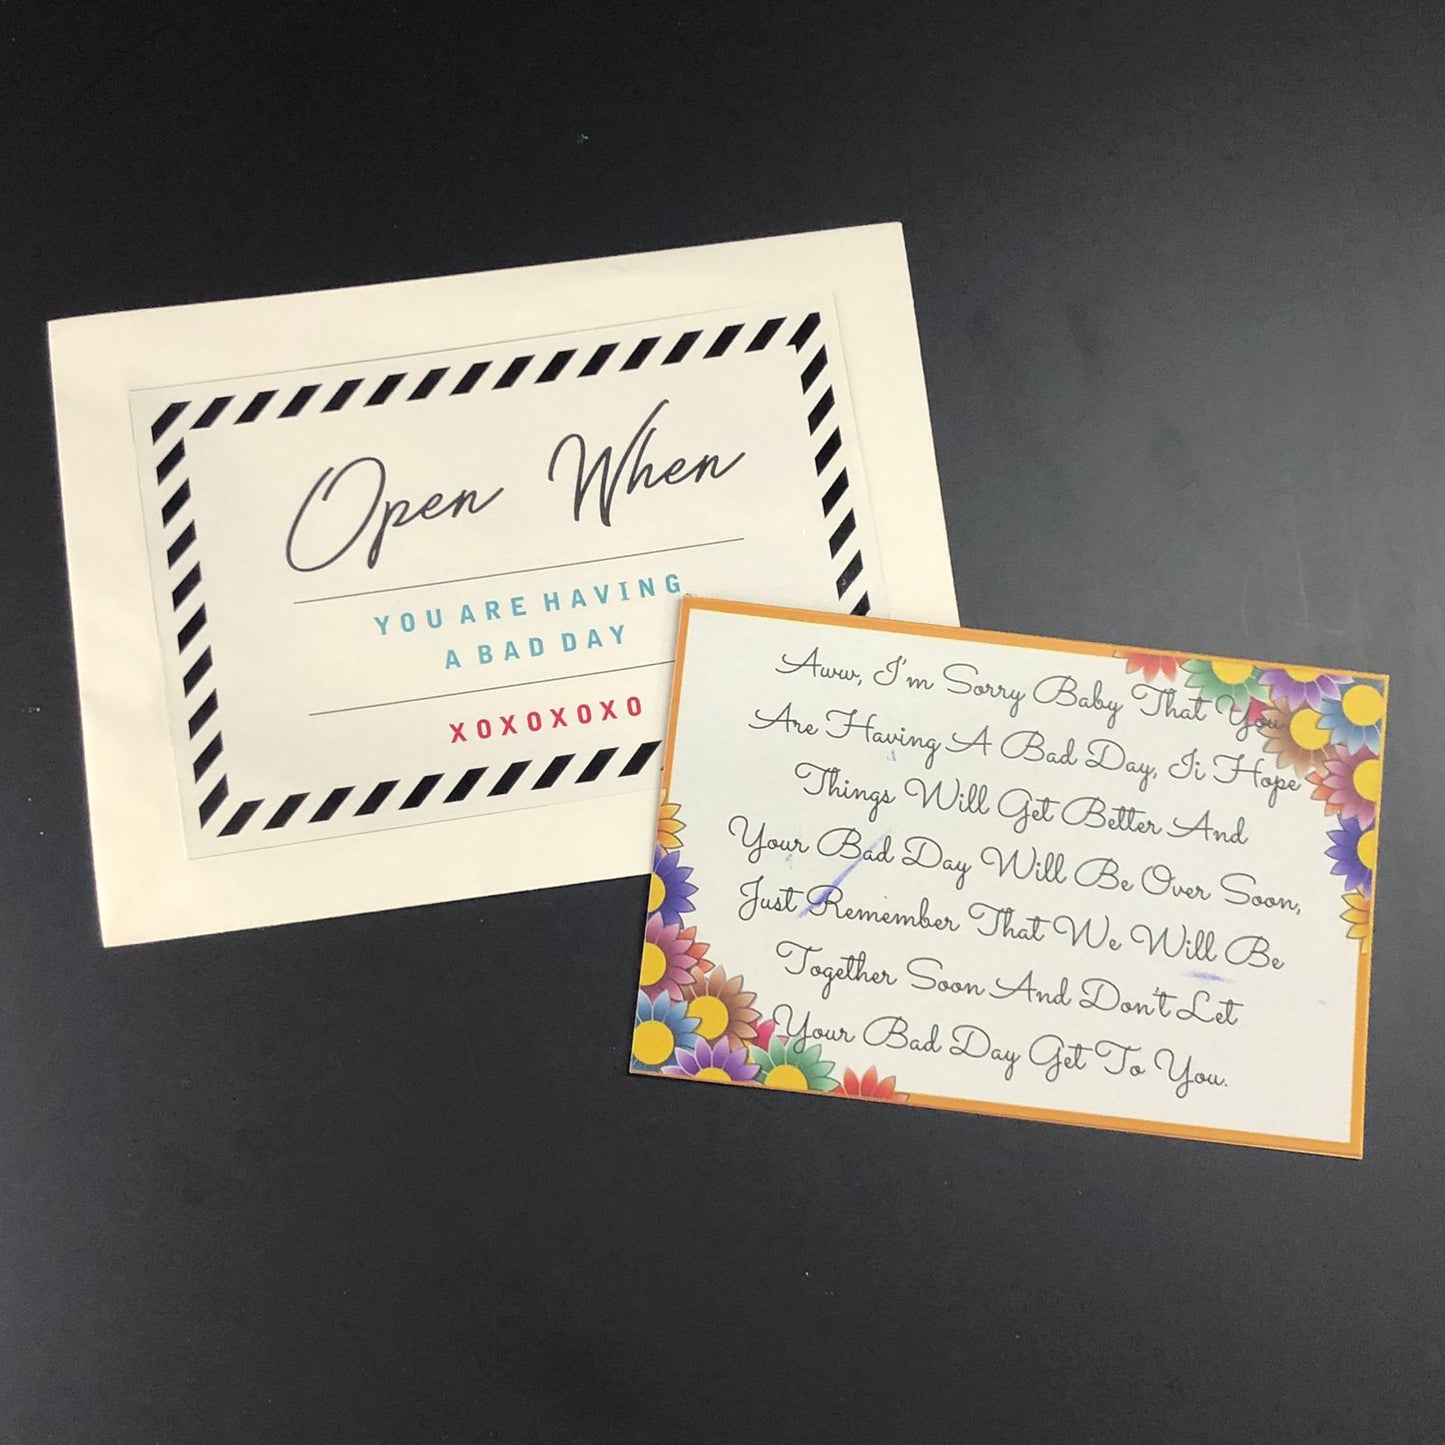 Open When
YOU ARE HAVING
A BAD DAY
XOXOXOXO
Aww, I'm Sorry Baby That You
Are Having A Bad Day, Ii Hope
Things Will Get Better And
Your Bad Day Will Be Over Soon,
Just Remember That We Will Be
Together Soon And Don't Let
Your Bad Day Get To You.